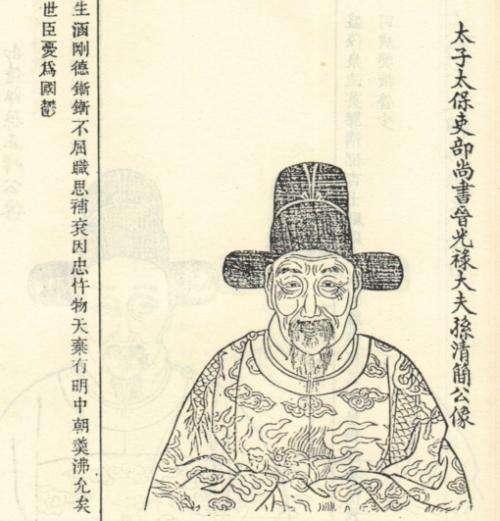 太子太保吏部尚書晉光祿大夫孫清簡公像
生涵剛德鏩鏩不屈職思補袞因忠忤物天棄有明中朝羹沸允矣
世臣憂爲國鬱